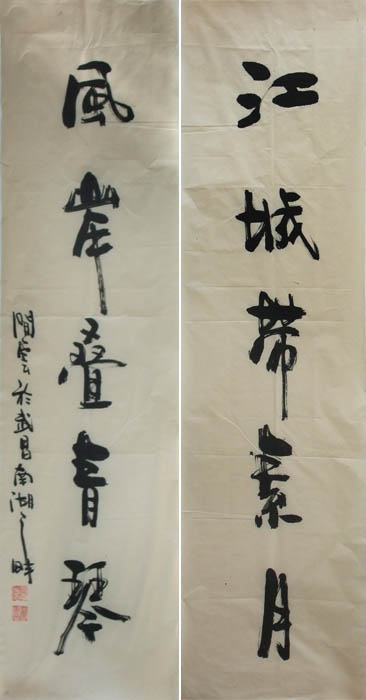 江城带素月
風岸叠青琴
閒雲於武昌南湖之畔